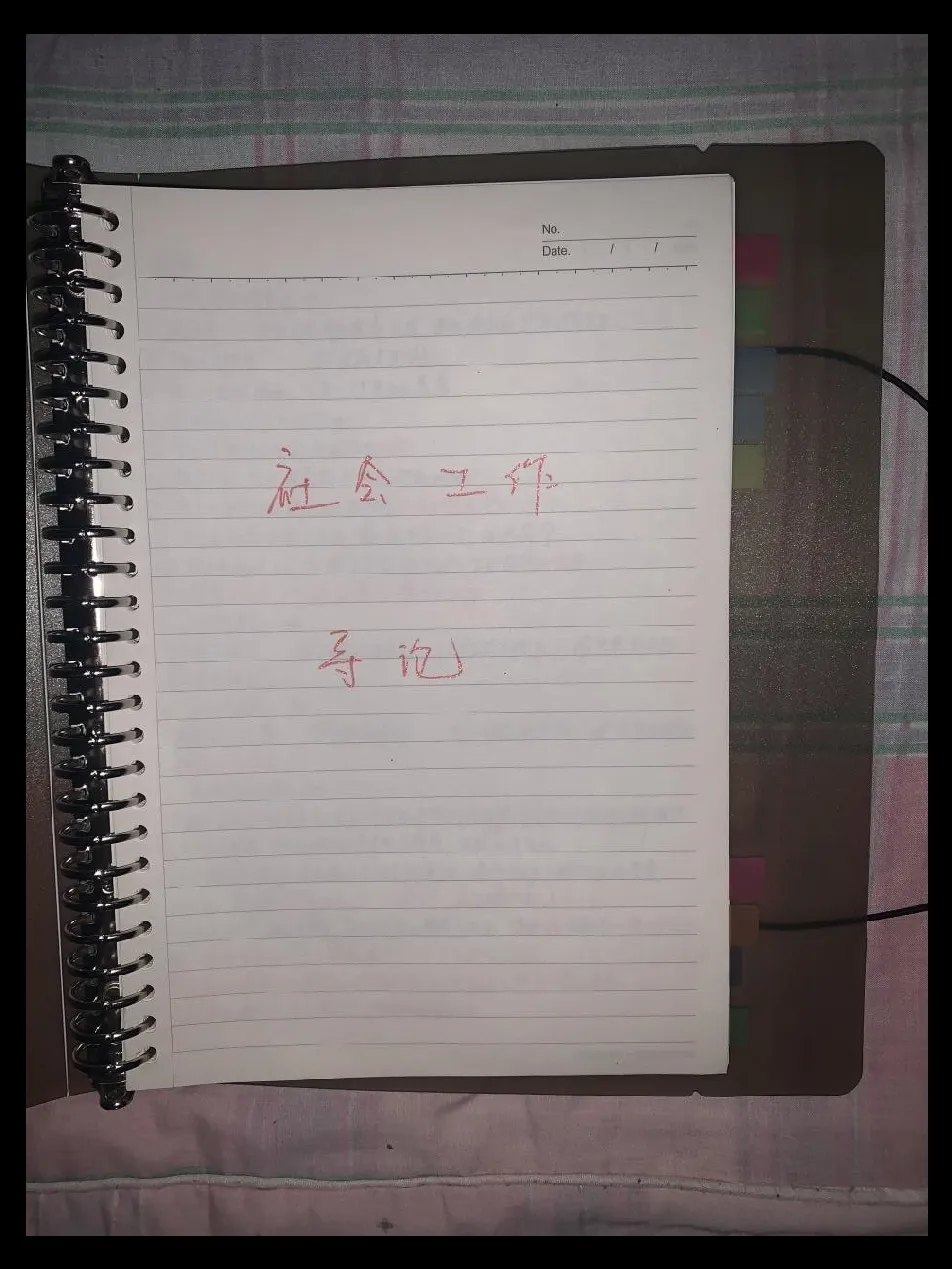 No.
Date. / /
社会工作
导论